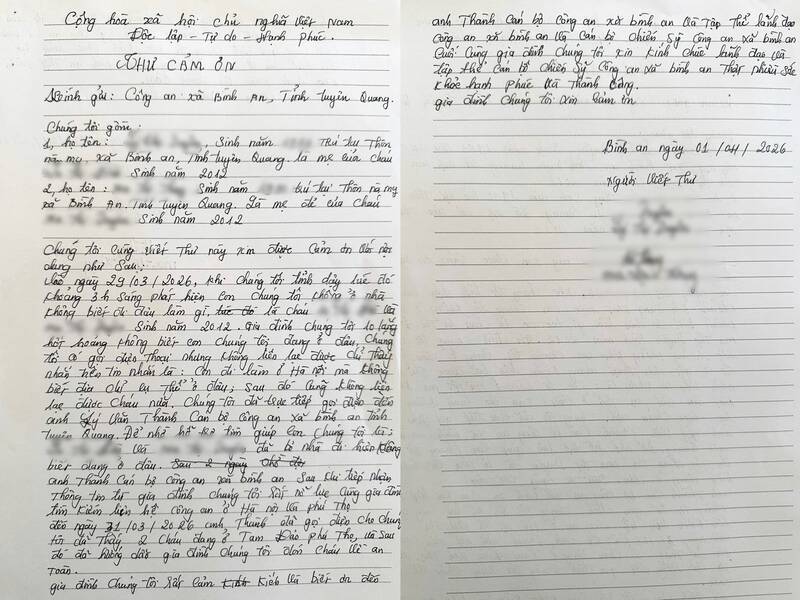 Cộng hòa xã hội chủ nghĩa Việt Nam
Độc lập - Tự do - Hạnh phúc.
THƯ CẢM ƠN
Kính gửi: Công an xã Bình An, Tỉnh Tuyên Quang.
Chúng tôi gồm:
1, họ tên: , Sinh năm Trú tại Thôn
nà mu, xã Bình an, Tỉnh tuyên Quang. là mẹ của cháu
Sinh năm 2012
2, họ tên: Sinh năm trú tại Thôn nà mu
xã Bình An. Tỉnh tuyên Quang. Là mẹ đẻ của cháu
Sinh năm 2012
Chúng tôi cùng viết Thư này xin được cảm ơn với nội
dung như sau:
Vào ngày 29/03/2026, khi chúng tôi tỉnh dậy lúc đó
khoảng 3h sáng phát hiện con chúng tôi không ở nhà
không biết đi đây làm gì, tức đó là cháu và
Sinh năm 2012. Gia đình chúng tôi lo lắng
hốt hoảng không biết con chúng tôi đang ở đâu, Chúng
tôi có gọi điện thoại nhưng không liên lạc được chỉ thấy
nhắn tin nhắn là: con đi làm ở Hà nội mà không
biết địa chỉ cụ thể ở đâu; sau đó cũng không liên
lạc được cháu nữa. Chúng tôi đã trực tiếp gọi điện đến
anh Lý Văn Thành Cán bộ công an xã bình an tỉnh
tuyên Quang. Để nhờ hỗ trợ tìm giúp con chúng tôi là;
và đã bỏ nhà đi hiện không
biết đang ở đâu. Sau 2 ngày
anh Thành Cán bộ công an xã bình an sau khi tiếp nhận
Thông tin từ gia đình chúng tôi rất nỗ lực cùng gia đình
tìm kiếm liên hệ công an ở Hà nội và phú Thọ
đến ngày 31/03/2026 anh Thành đã gọi điện cho chúng
tôi đã thấy 2 Cháu đang ở Tam Đảo phú Thọ, và sau
đó đã hướng dẫn gia đình chúng tôi đón cháu về an
toàn.
gia đình chúng tôi rất cảm kích và biết ơn đến
anh Thành Cán bộ công an xã bình an và Tập thể lãnh đạo
công an xã bình an và cán bộ chiến sỹ Công an xã bình an
Cuối cùng gia đình chúng tôi xin kính chúc lãnh đạo và
tập thể cán bộ chiến sỹ công an xã bình an Thật nhiều sức
khỏe hạnh phúc và Thành công.
gia đình chúng tôi xin cảm ơn
Bình an ngày 01/04/2026
Người Viết Thư